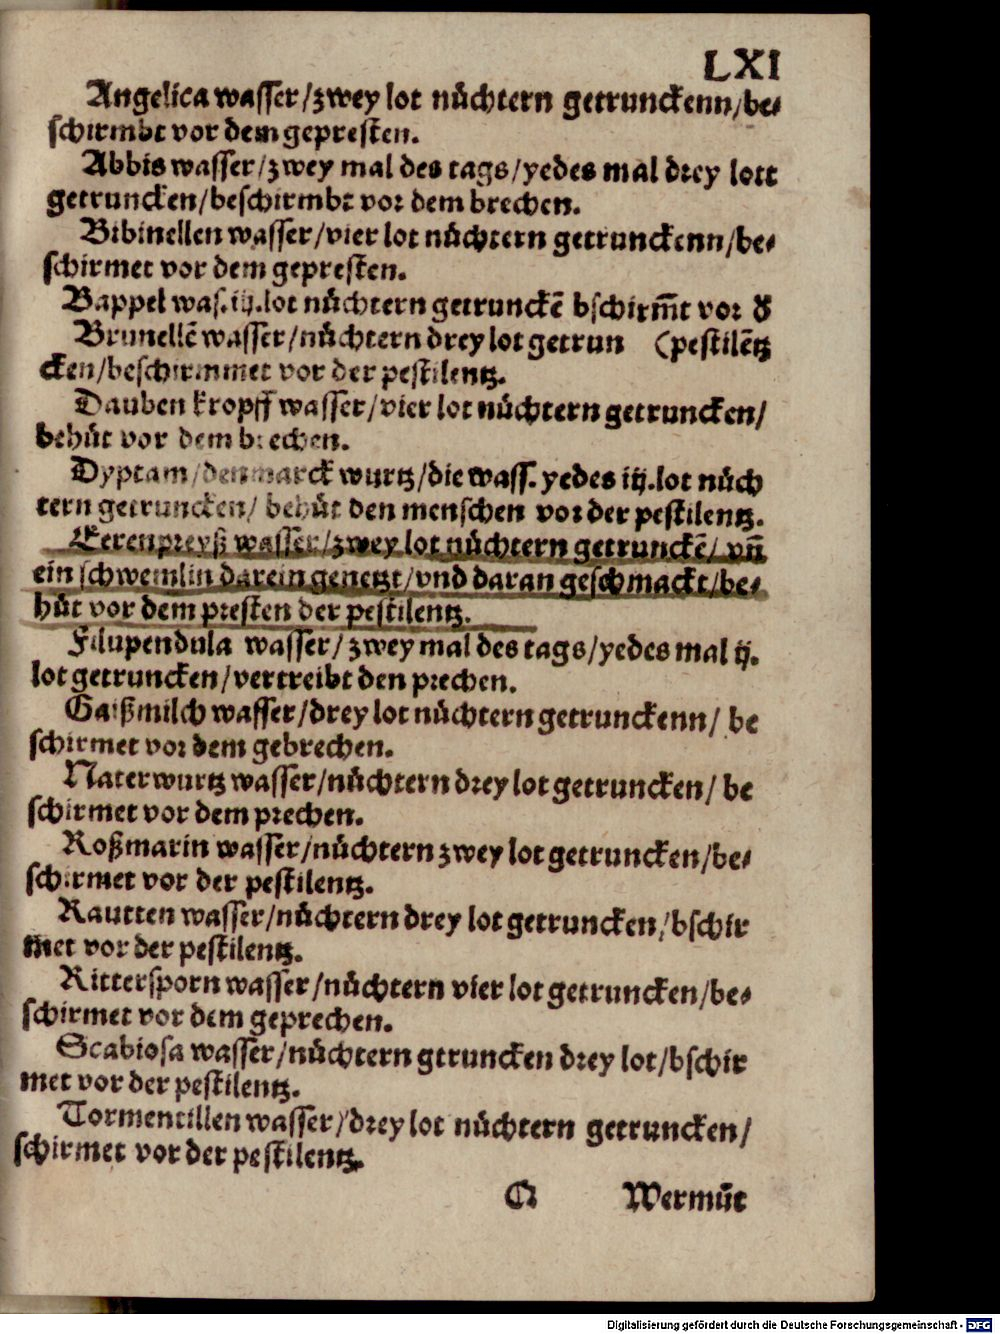 LXI
Angelica wasser/zwey lot nüchtern getrunckenn/be⸗
schirmbt vor dem gepresten.
Abbis wasser/zwey mal des tags/yedes mal drey lott
getruncken/beschirmbt vor dem brechen.
Bibinellen wasser/vier lot nüchtern getrunckenn/be⸗
schirmet vor dem gepresten.
Bappel was.iij.lot nüchtern getrunckē bschirm̄t vor ď
Brunellē wasser/nüchtern drey lot getrun (pestilētz
cken/beschirmmet vor der pestilentz.
Dauben kropff wasser/vier lot nüchtern getruncken/
behüt vor dem brechen.
Dyptam/denmarck wurtz/die wass. yedes iij.lot nüch
tern getruncken/ behüt den menschen vor der pestilentz.
Eerenpreyß wasser/zwey lot nüchtern getrunckē/ vñ
ein schwemlin darein genetzt/vnd daran geschmackt/be⸗
hüt vor dem presten der pestilentz.
Filupendula wasser/zwey mal des tags/yedes mal ij.
lot getruncken/vertreibt den prechen.
Gaißmilch wasser/drey lot nüchtern getrunckenn/ be
schirmet vor dem gebrechen.
Naterwurtz wasser/nüchtern drey lot getruncken/ be
schirmet vor dem prechen.
Roßmarin wasser/nüchtern zwey lot getruncken/be⸗
schirmet vor der pestilentz.
Rautten wasser/nüchtern drey lot getruncken/bschir
met vor der pestilentz.
Rittersporn wasser/nüchtern vier lot getruncken/be⸗
schirmet vor dem geprechen.
Scabiosa wasser/nüchtern getruncken drey lot/bschir
met vor der pestilentz.
Tormentillen wasser/drey lot nüchtern getruncken/
schirmet vor der pestilentz.
Q Wermůt
Digitalisierung gefördert durch die Deutsche Forschungsgemeinschaft - DFG